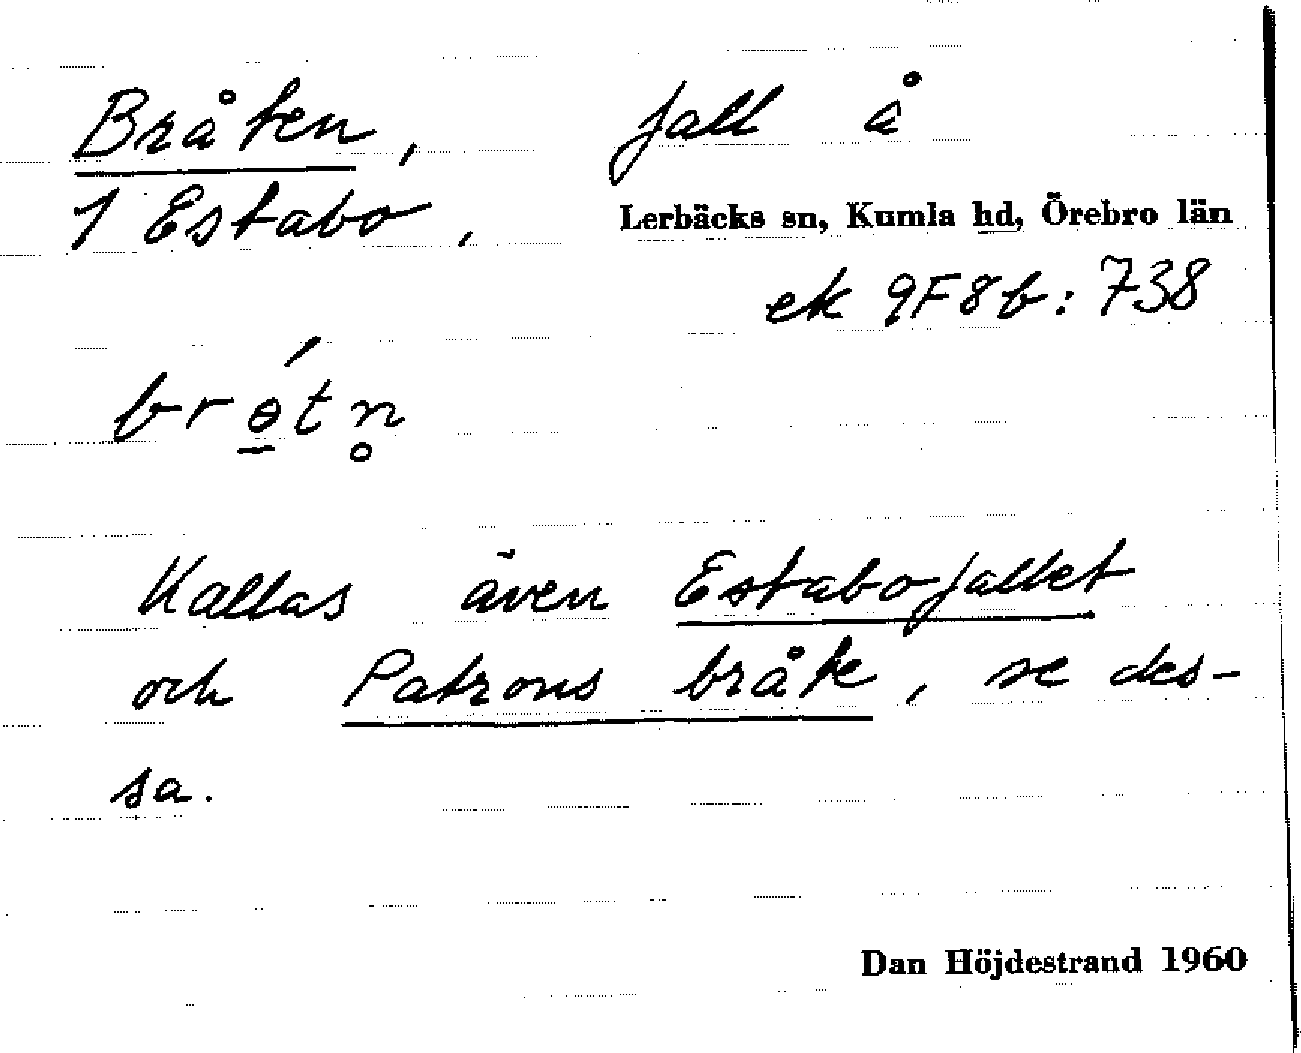 Bråten, fall å
1 Estabo, Lerbäcks sn, Kumla hd, Örebro län
ek 9F8b: 738
brɵ̱́tn̥
Kallas även Estabofallet
och Patrons bråte, se des-
sa.
Dan Höjdestrand 1960